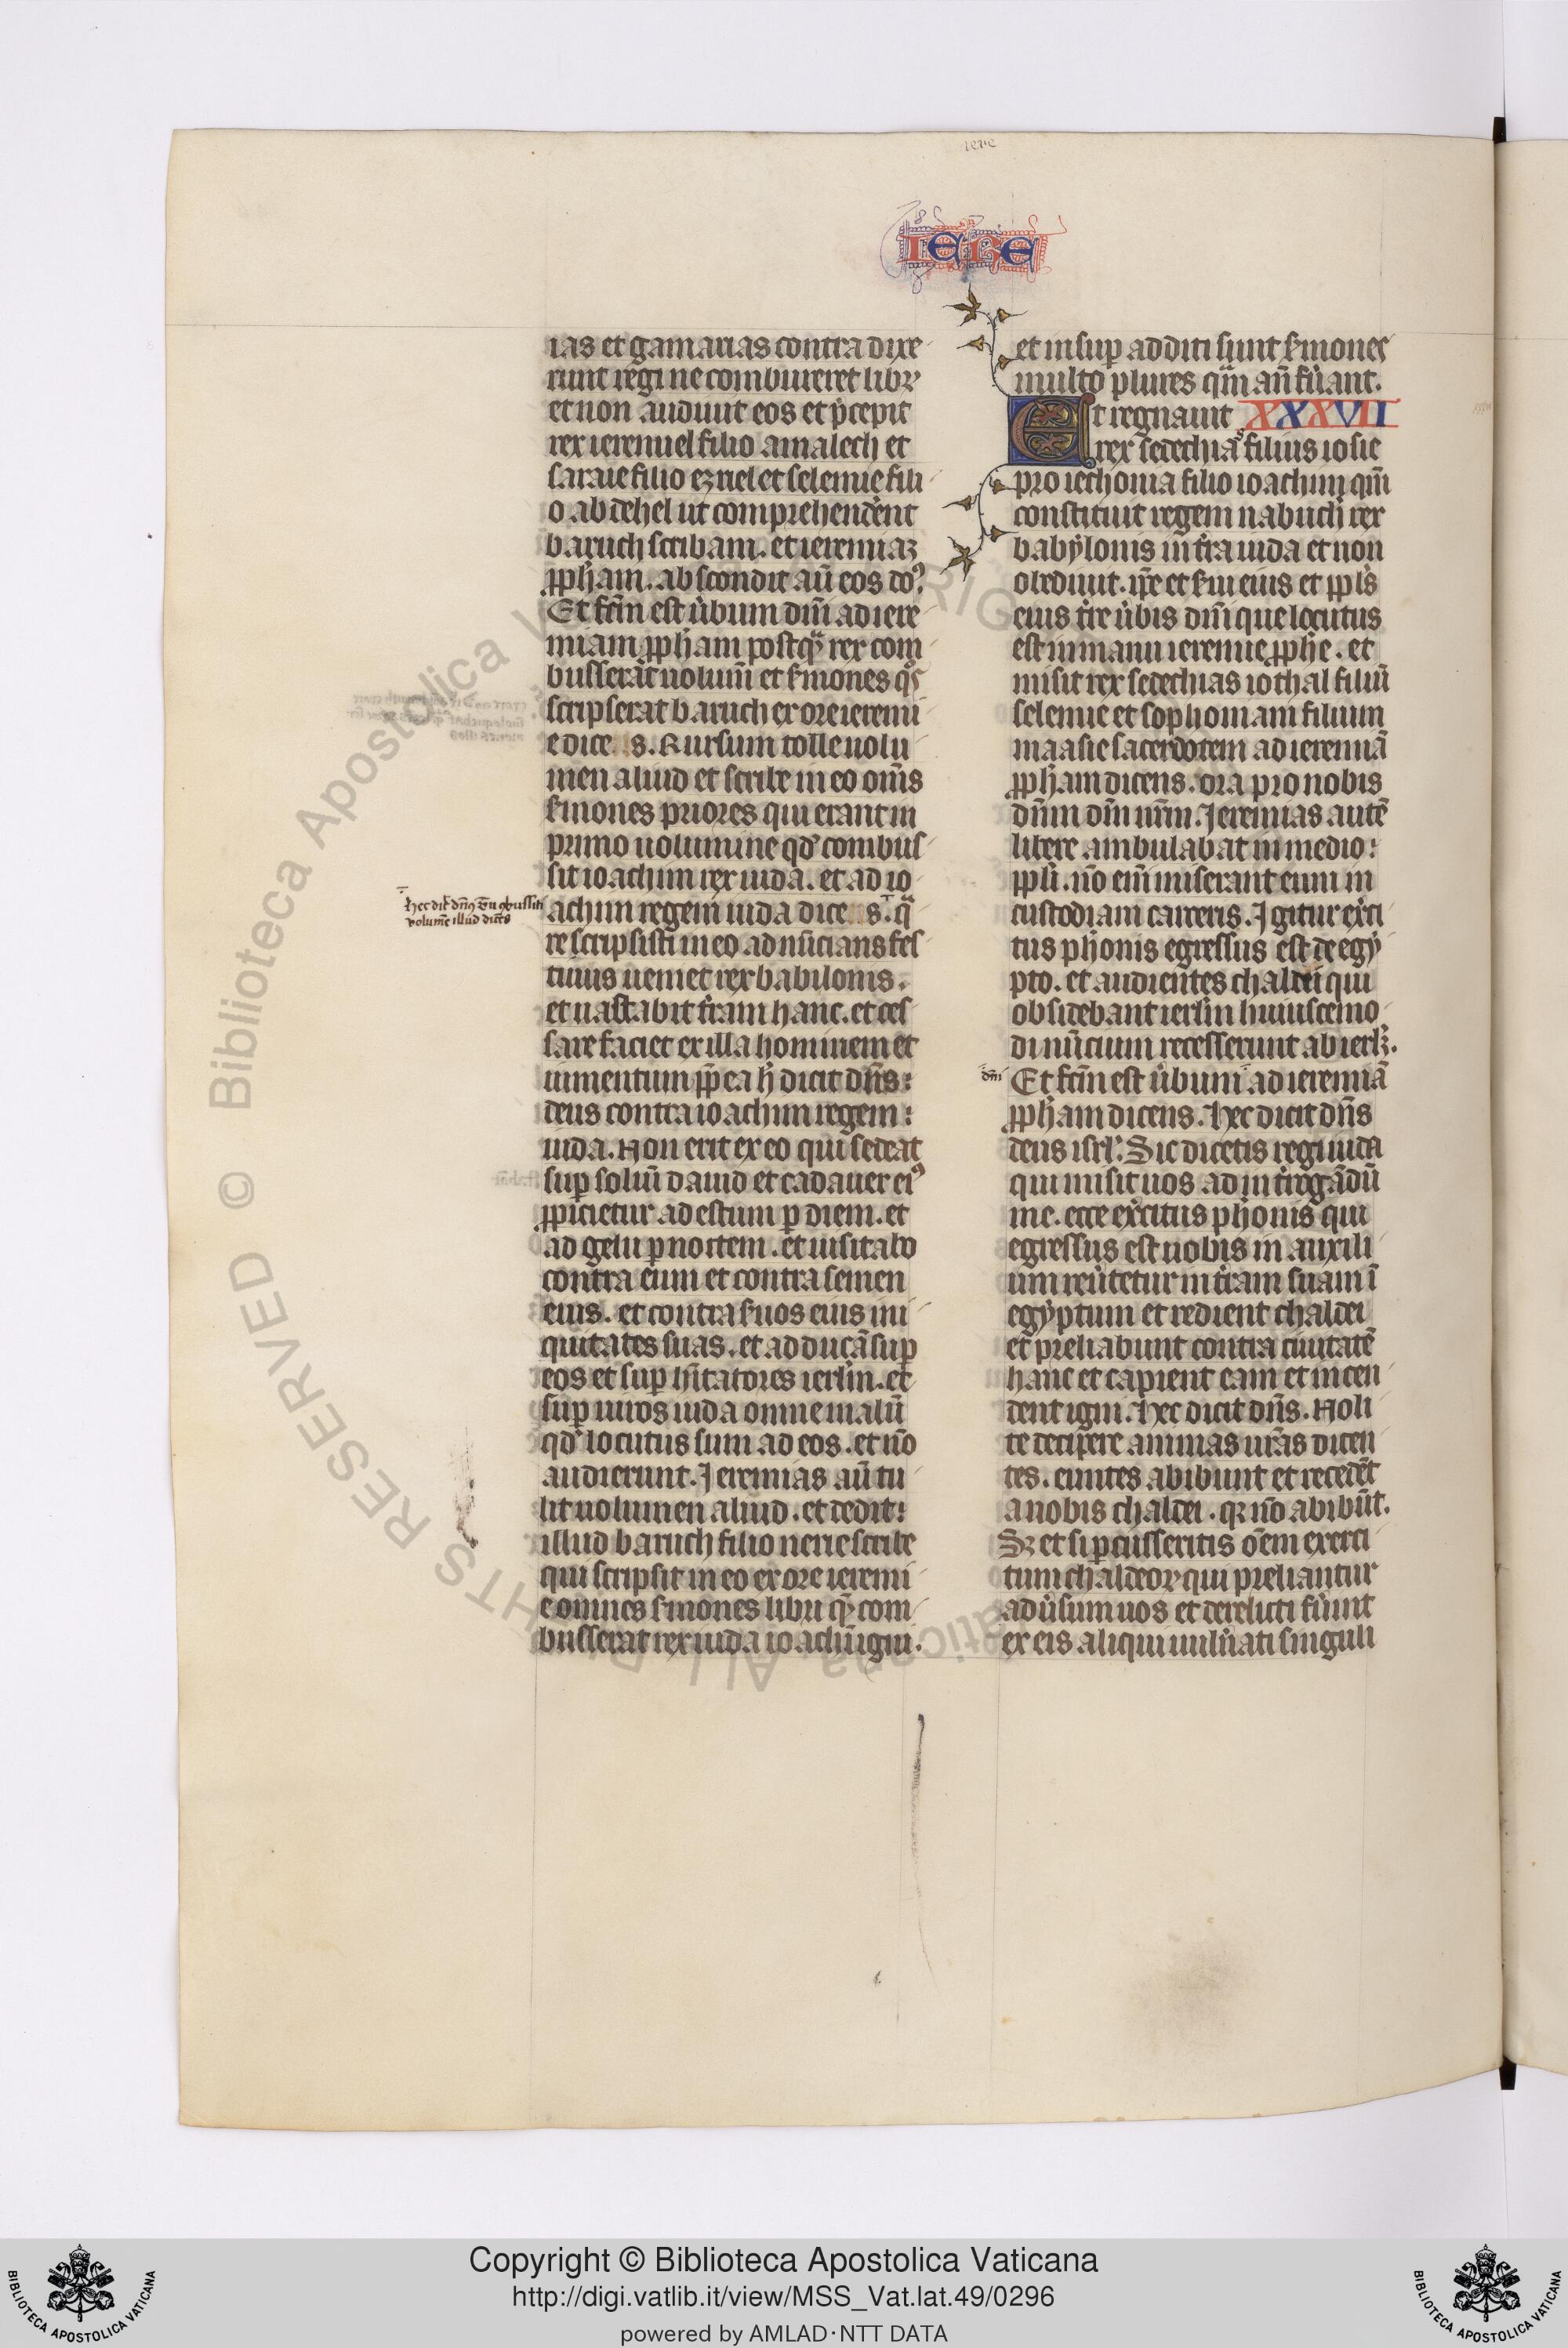 iere
IERE
ias et gamarias contra dixe
runt regi ne combureret libꝝ
et non audiuit eos et p̄cepit
rex ieremiel filio amalech et
saraie filio ezriel et selemie fili
o abdehel ut comprehendẽnt
baruch scribam. et ieremiaꝫ
ꝓpħam. abscondit aū eos doꝰ
Et fcm̄ est ũbum dn̄i ad iere
miam ꝓpħam postqᷓ rex com
busserat uolum̄ et ẜmones qͦs
scripserat baruch ex ore ieremi
e dice s. Rursum tolle uolu
men aliud et scribe in eo om̄s
ẜmones priores qui erant in
primo uolumine qd̾ combus
sit ioachim rex iuda. et ad io
achim regem iuda dice s. qᷓ
hec dic̄ dn̄s tu cōbussisti
volumē illud dicēs
re scripsisti in eo adnūcians fes
tinus ueniet rex babilonis.
et uastabit t̾ram hanc. et ces
sare faciet ex illa hominem et
iumentum ꝓp̄ ea ħ dicit dn̄s:
deus contra ioachim regem:
iuda. Non erit ex eo qui sedeat
suꝑ soliū dauid et cadauer eiꝰ
ꝓpicietur ad estum ꝑ diem. et
ad gelu ꝑ noctem. et uisitabo
contra eum et contra semen
eius. et contra ẜuos eius ini
quitates suas. et adducā suꝑ
eos et suꝑ hītatores ierlm̄. et
suꝑ uiros iuda omne malū
qd̾ locutus sum ad eos. et nō
audierunt. Jeremias aū tu
lit uolumen aliud. et dedit:
illud baruch filio nerie scribe
qui scripsit in eo ex ore ieremi
e omnes ẜmones libri qͤ com
busserat rex iuda ioachī igni.
et insuꝑ additi sunt ẜmones
multo plures qᷓm an̄ fũant.
Et regnauit XXXVII
rex sedechias filius iosie
pro iechonia filio ioachim qm̄
constituit regem nabuch̾ rex
babẏlonis in t̾ra iuda et non
obediuit. ip̄e et ẜui eius et ppl̾s
eius t̾re ũbis dn̄i que locutus
est in manu ieremie ꝓphe. et
misit rex sedechias iothal filiū
selemie et sophoniam filium
maasie sacerdotem ad ieremiā
ꝓpħam dicens. ora pro nobis
dn̄m dm̄ nr̄m. Jeremias autē
libere ambulabat in medio:
ppl̾i. nō em̄ miserant eum in
custodiam carceris. Igitur ex̾ci
tus pħonis egressus est de egẏ
pto. et audientes chaldei qui
obsidebant ierlm̄ huiuscemo
di nūcium recesserunt ab ierlꝫ.
dn̄i Et fcm̄ est ũbum ad ieremiā
ꝓpħam dicens. Hec dicit dn̄s
deus isrl̾. Sic dicetis regi iuda
qui misit uos ad int̾rogādū
me. ecce ex̾citus pħonis qui
egressus est uobis in auxili
um reũtetur in t̾ram suam ī
egẏptum et redient chaldei
et preliabunt contra ciuitatē
hanc et capient eam et incen
dent igni. Hec dicit dn̄s. Noli
te decipere animas ur̄as dicen
tes. euntes abibunt et recedēt
a nobis chaldei. qꝛ nō abibūt.
Sꝫ et si ꝑcusseritis oēm exerci
tum chaldeoꝝ qui preliantur
adũsum uos et derelicti fũint
ex eis aliqui uuln̾ati singuli
© Biblioteca Apostolica Vaticana. ALL RIGHTS RESERVED
Copyright © Biblioteca Apostolica Vaticana
http://digi.vatlib.it/view/MSS_Vat.lat.49/0296
powered by AMLAD·NTT DATA
BIBLIOTECA APOSTOLICA VATICANA
BIBLIOTECA APOSTOLICA VATICANA